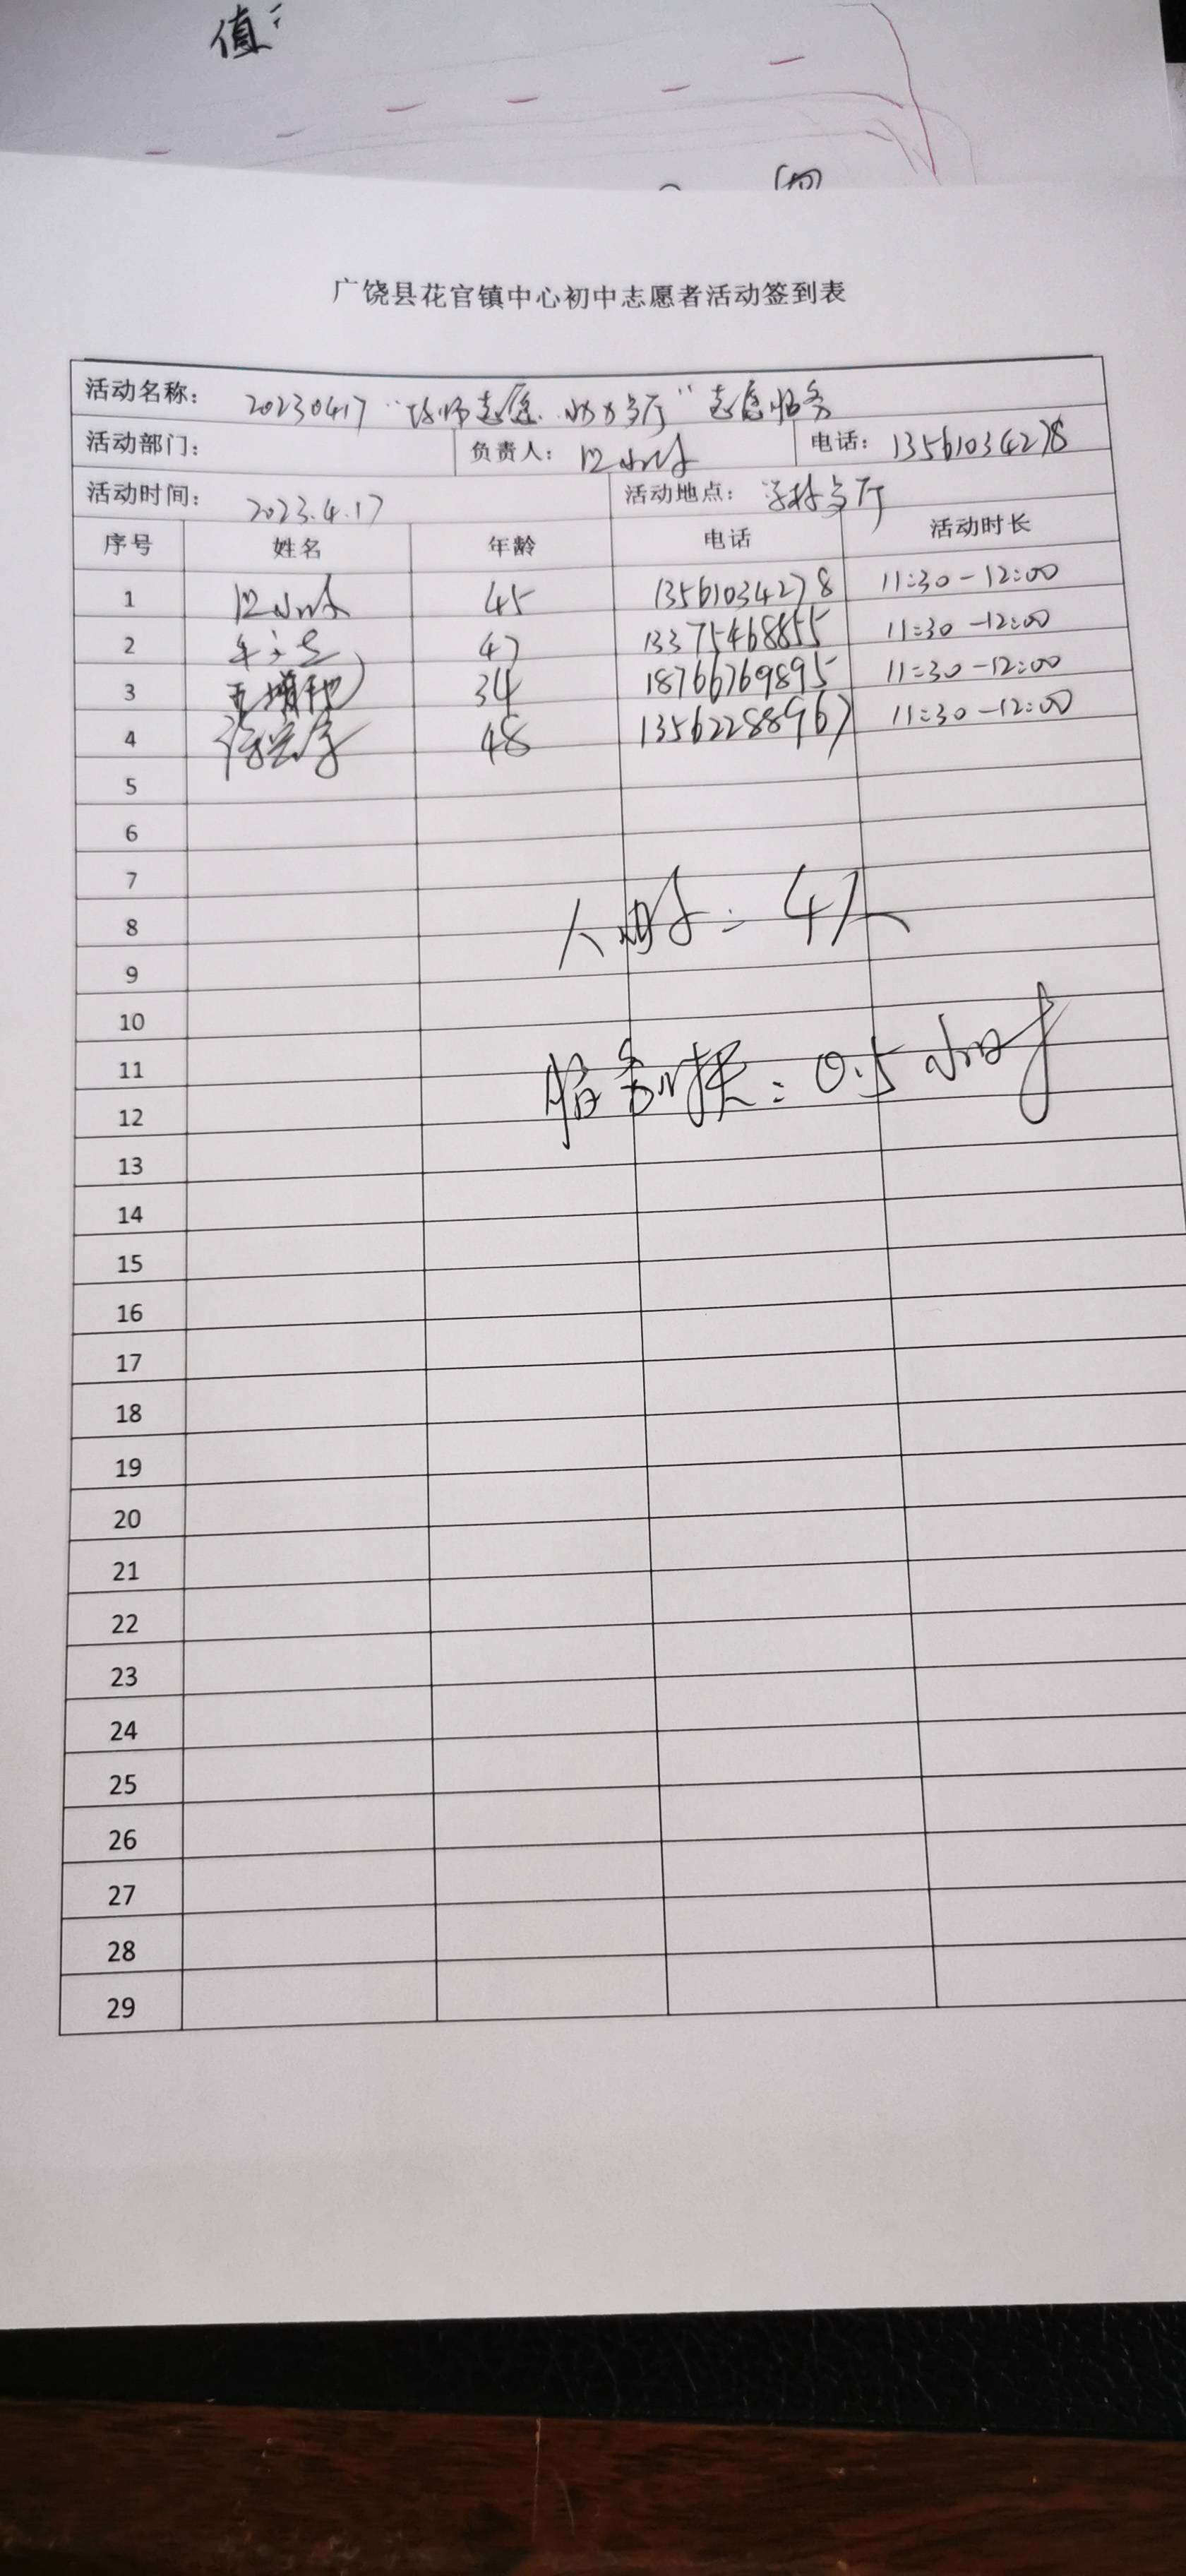 值:
广饶县花官镇中心初中志愿者活动签到表
活动名称: 20230417 "教师志愿、助力餐厅" 志愿服务
活动部门: 负责人: 电话: 13561034278
活动时间: 2023.4.17 活动地点: 学校餐厅
序号 姓名 年龄 电话 活动时长
1 45 13561034278 11:30-12:00
2 47 13375468855 11:30-12:00
3 34 18766769895 11:30-12:00
4 48 13562288967 11:30-12:00
5
6
7
8
人时: 4人
9
10
11
服务时长: 0.5小时
12
13
14
15
16
17
18
19
20
21
22
23
24
25
26
27
28
29